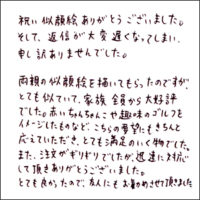 祝い似顔絵ありがとうございました。
そして、返信が大変遅くなってしまい、
申し訳ありませんでした。
両親の似顔絵を描いてもらったのですが、
とても似ていて、家族全員から大好評
でした。赤いちゃんちゃんこや趣味のゴルフも
イメージしたものなど、こちらの要望にもきちんと
応えていただき、とても満足のいく物でした。
また、注文がギリギリでしたが、迅速に対応し
て頂きありがとうございました。
とても良かったので、友人にもお薦めさせて頂きました